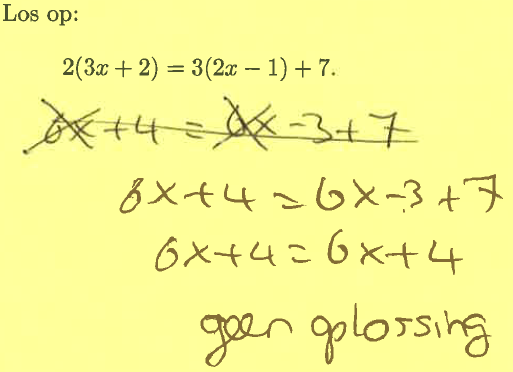 Los op:
2(3x + 2) = 3(2x − 1) + 7.
6x + 4 = 6x − 3 + 7
6x + 4 = 6x − 3 + 7
6x + 4 = 6x + 4
geen oplossing